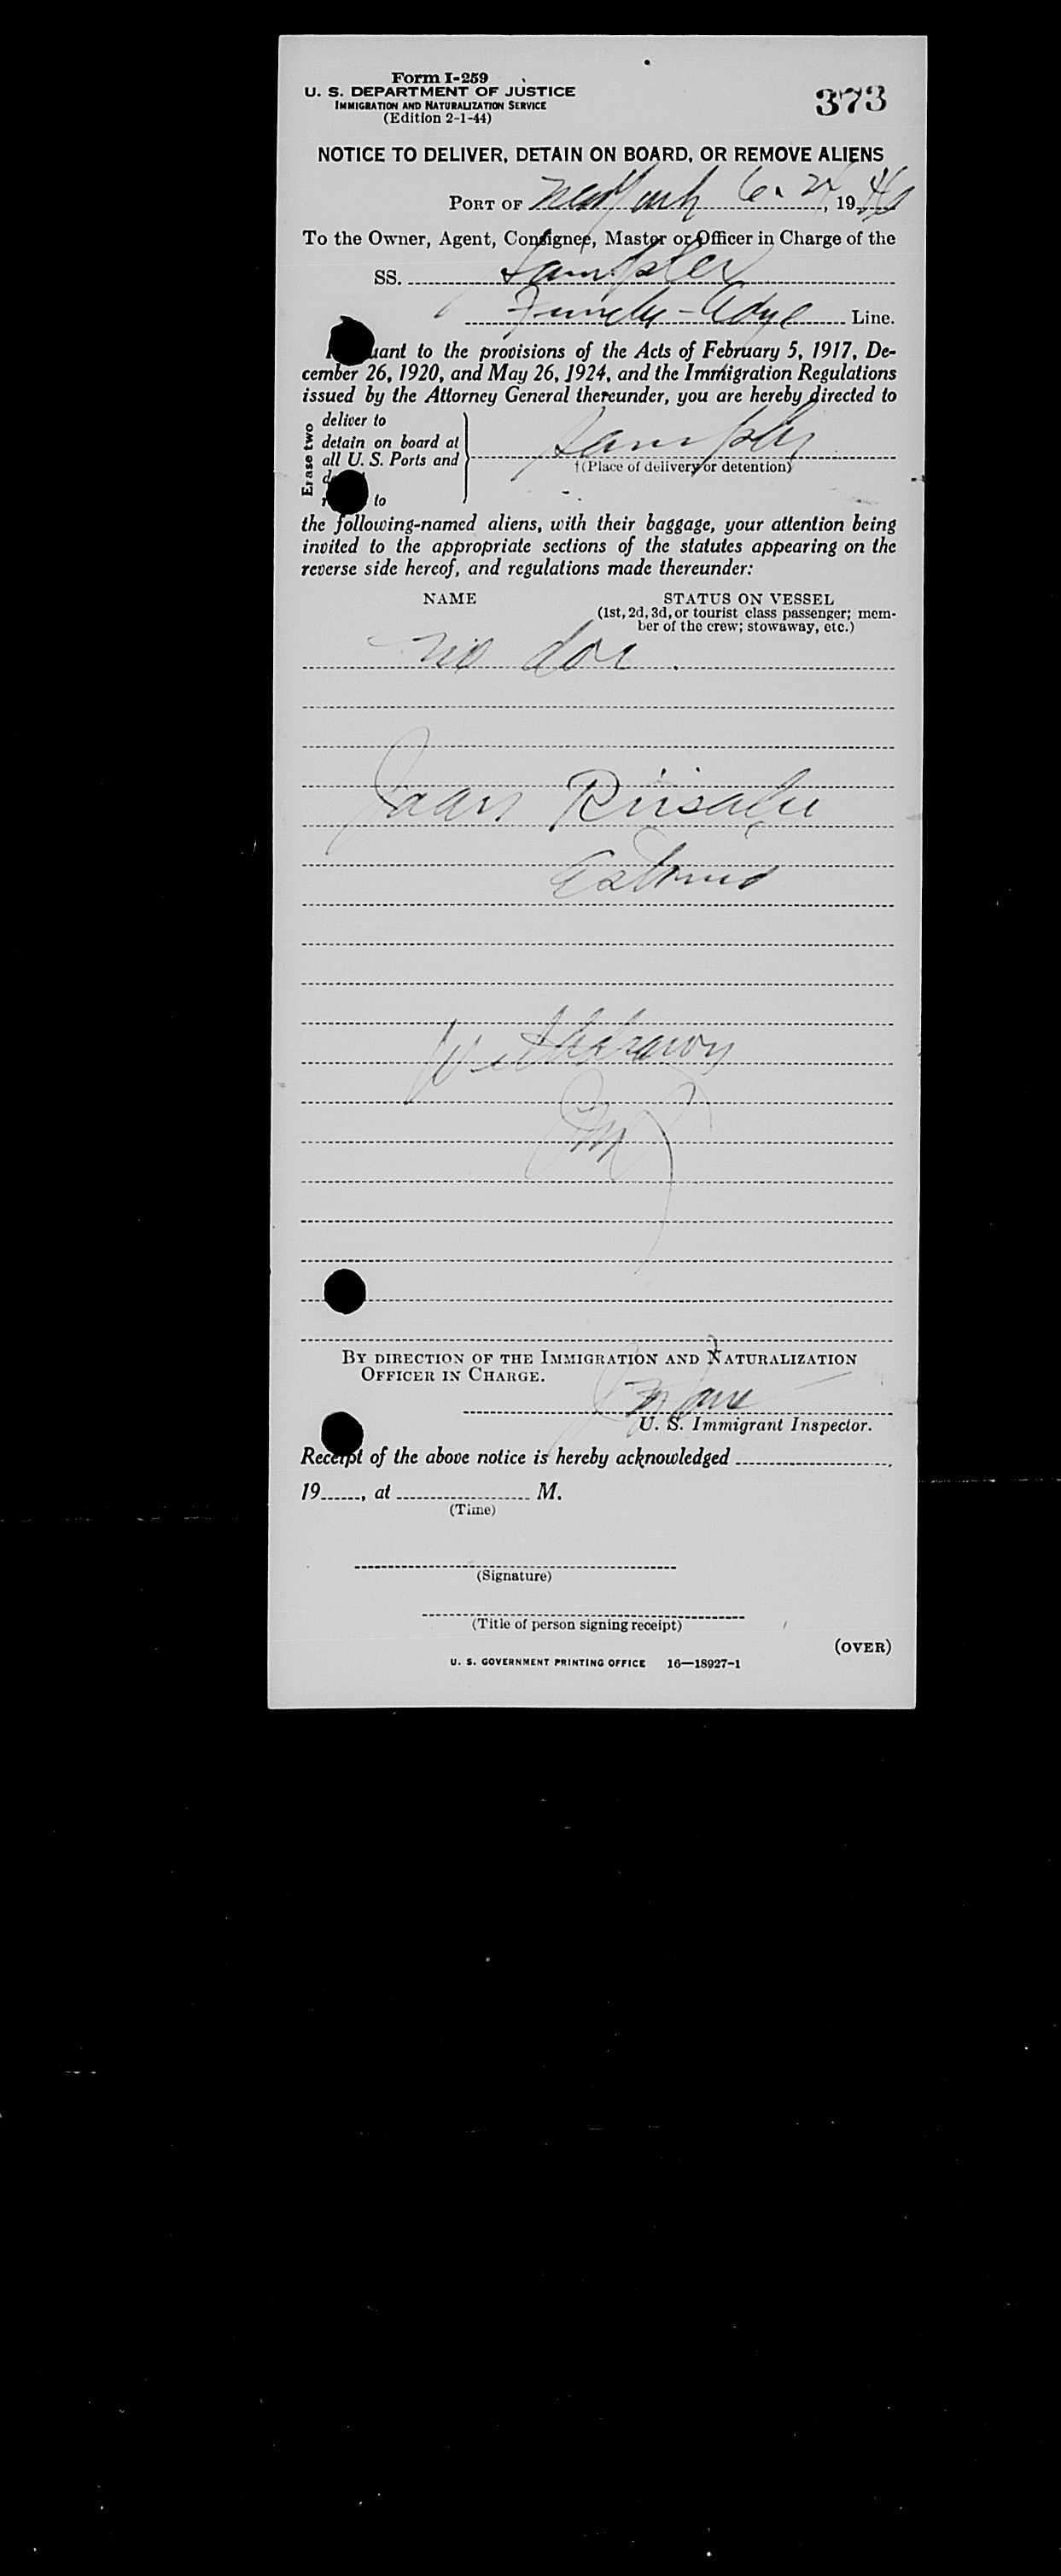 Form I-259
U. S. DEPARTMENT OF JUSTICE
IMMIGRATION AND NATURALIZATION SERVICE
(Edition 2-1-44)
373
NOTICE TO DELIVER, DETAIN ON BOARD, OR REMOVE ALIENS
PORT OF New York 6. 24, 1946
To the Owner, Agent, Consignee, Master or Officer in Charge of the
SS.
Funch-Edye Line.
uant to the provisions of the Acts of February 5, 1917, De-
cember 26, 1920, and May 26, 1924, and the Immigration Regulations
issued by the Attorney General thereunder, you are hereby directed to
Erase two
deliver to
detain on board at
all U. S. Ports and
to
†(Place of delivery or detention)
the following-named aliens, with their baggage, your attention being
invited to the appropriate sections of the statutes appearing on the
reverse side hereof, and regulations made thereunder:
NAME STATUS ON VESSEL
(1st, 2d, 3d, or tourist class passenger; mem-
ber of the crew; stowaway, etc.)
no doc.
Jaan Riisalu
Withdrawn
BY DIRECTION OF THE IMMIGRATION AND NATURALIZATION
OFFICER IN CHARGE.
U. S. Immigrant Inspector.
Receipt of the above notice is hereby acknowledged ,
19 , at M.
(Time)
(Signature)
(Title of person signing receipt)
(OVER)
U. S. GOVERNMENT PRINTING OFFICE 16—18927-1